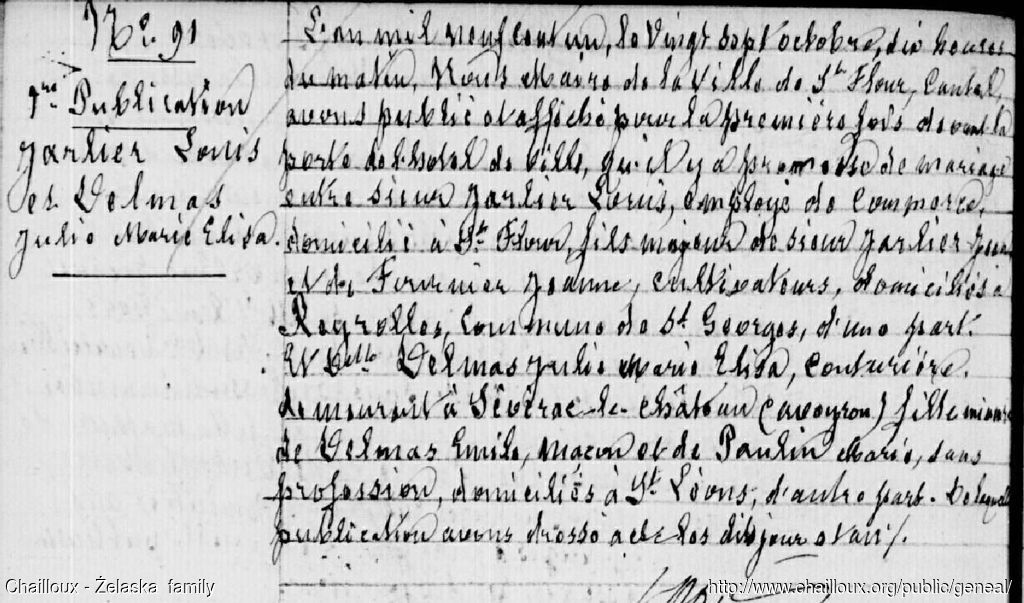 N° 91
1re Publication
Jarlier Louis
et Delmas
Julie Marie Elisa.
L'an mil neuf cent un, le vingt sept octobre, dix heures
du matin, Nous Maire de la ville de St Flour, Cantal
avons publié et affiché pour la première fois devant la
porte de l'hotel de ville, qu'il y a promesse de mariage
entre sieur Jarlier Louis, employé de Commerce,
domicilié à St Flour, fils majeur de sieur Jarlier Jean
et de Fournier Jeanne, cultivateurs, domiciliés à
Reyrolles, Commune de St Georges, d'une part.
Et Delle Delmas Julie Marie Elisa, couturière,
demeurant à Sévérac-le-Château (Aveyron) fille mineure
de Delmas Emile, maçon et de Paulin Marie, sans
profession, domiciliés à St Léons, d'autre part. De laquelle
publication avons dressé acte les dits jour et an ./.
Chailloux - Żelaska family
http://www.chailloux.org/public/geneal/